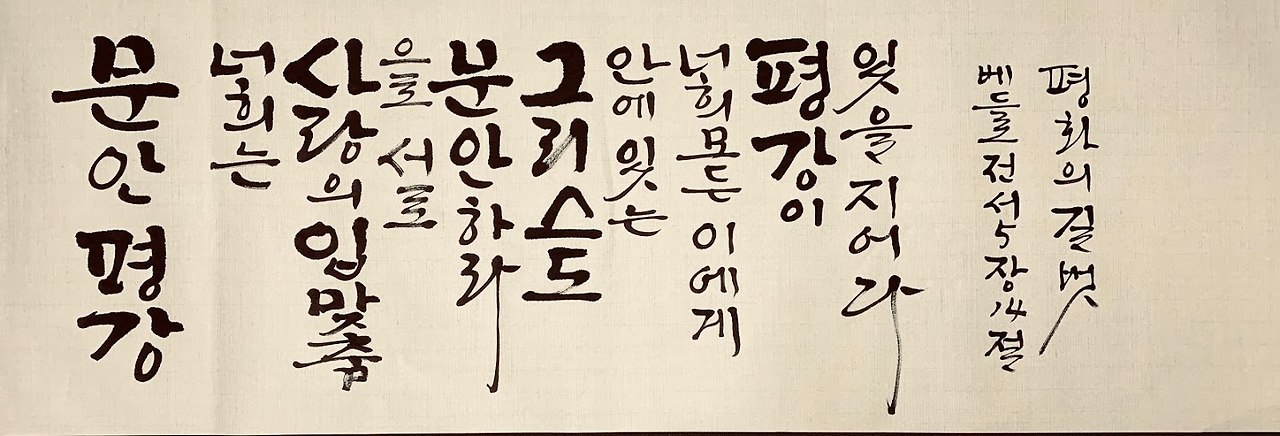 문안 평강
너희는
사랑의 입맞춤
으로 서로
문안하라
그리스도
안에 있는
너희 모든 이에게
평강이
있을지어다
베드로전서 5장 14절
평화의 길벗